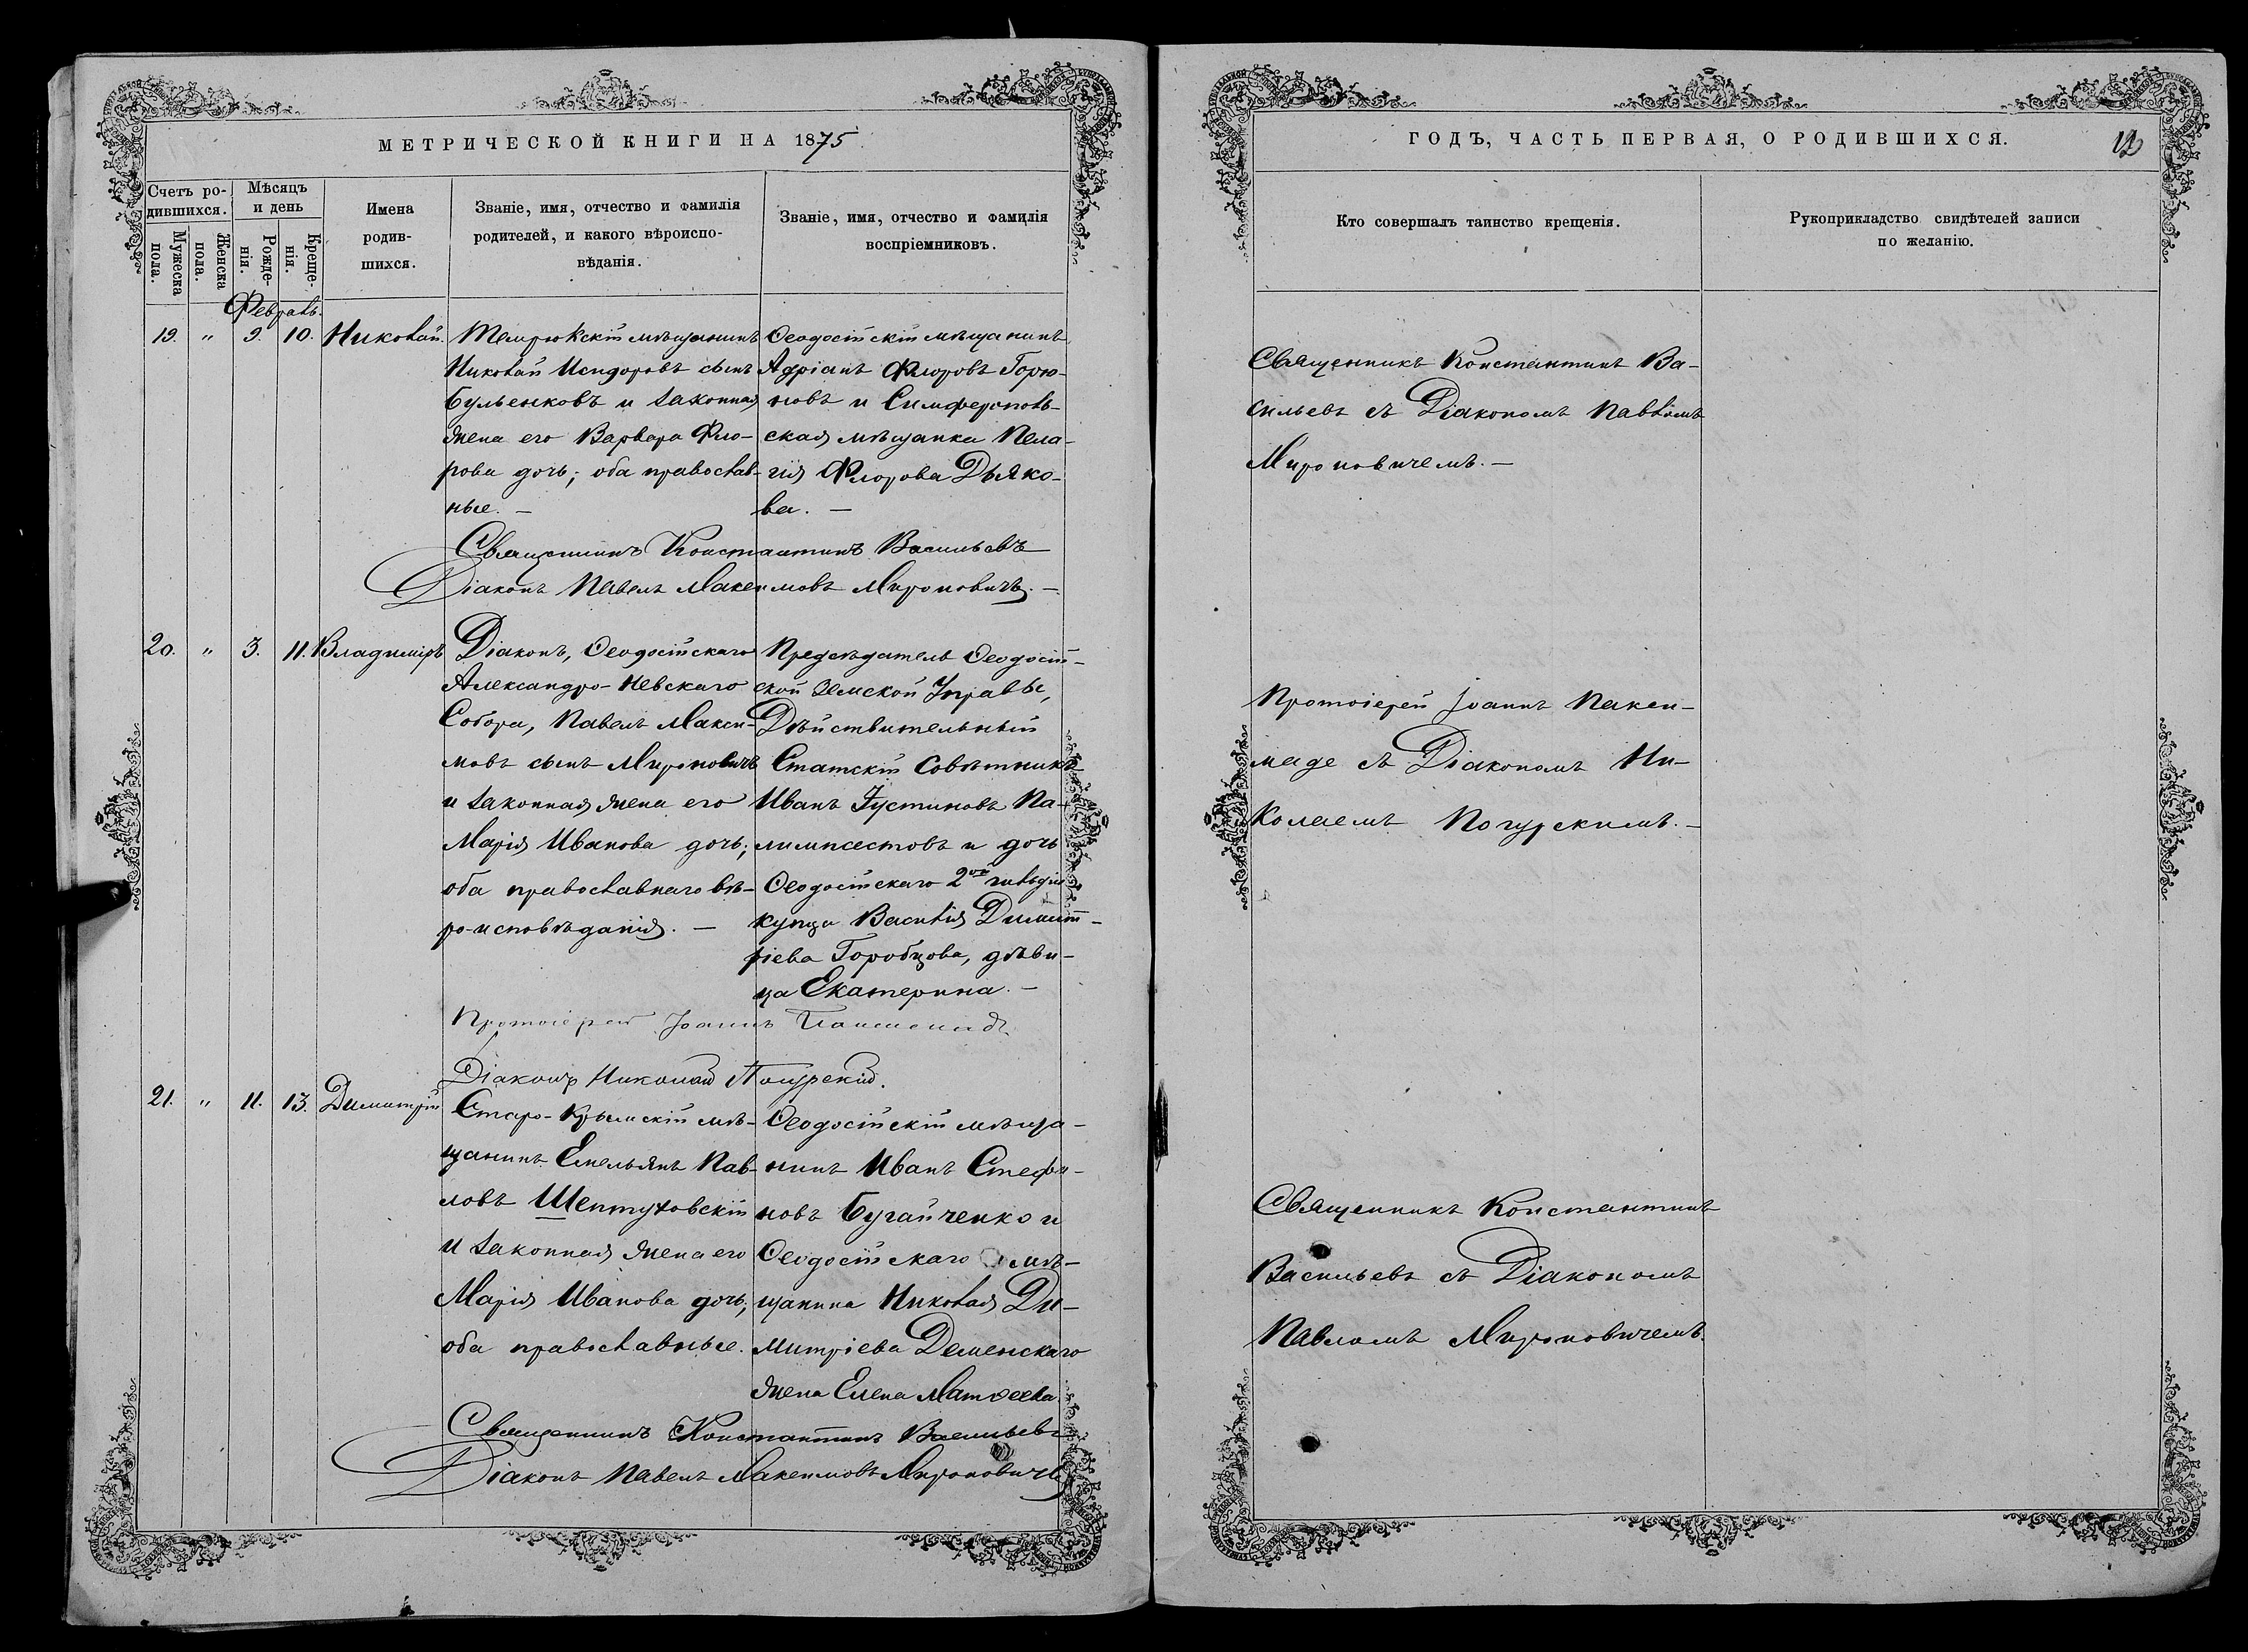 МЕТРИЧЕСКОЙ КНИГИ НА 1875
Счетъ ро-
дившихся.
Мужеска пола.
Женска пола.
Мѣсяцъ
и день
Рожде-
нія.
Креще-
нія.
Имена
родив-
шихся.
Званіе, имя, отчество и фамилія
родителей, и какого вѣроиспо-
вѣданія.
Званіе, имя, отчество и фамилія
воспріемниковъ.
Февраль.
19. " 9. 10. Николай.
Темрюкскій мѣщанинъ
Николай Исидоровъ сынъ
Бульенковъ и законная
жена его Варвара Фло-
рова дочь; оба православ-
ные. —
Ѳеодосійскій мѣщанинъ
Адріанъ Флоровъ Горю-
новъ и Симферополь-
ская мѣщанка Пела-
гія Флорова Дьяко-
ва. —
Священникъ Константинъ Васильевъ
Діаконъ Павелъ Максимовъ Мироновичъ. —
20. " 3. 11. Владиміръ
Діаконъ, Ѳеодосійскаго
Александро-Невскаго
Собора, Павелъ Макси-
мовъ сынъ Мироновичъ
и законная жена его
Марія Иванова дочь;
оба православнаго вѣ-
ро-исповѣданія. —
Предсѣдатель Ѳеодосій-
ской Земской Управы,
Дѣйствительный
Статскій Совѣтникъ
Иванъ Іустиновъ Па-
лимпсестовъ и дочь
Ѳеодосійскаго 2ой гильдіи
купца Василія Димит-
ріева Горобцова, дѣви-
ца Екатерина. —
Протоіерей Іоаннъ
Діаконъ Николай Погурскій.
21. " 11. 13. Димитрій
Старо-Крымскій мѣ-
щанинъ Емельянъ Пав-
ловъ Шептуховскій
и законная жена его
Марія Иванова дочь;
оба православные.
Ѳеодосійскій мѣща-
нинъ Иванъ Стефа-
новъ Бугайченко и
Ѳеодосійскаго мѣ-
щанина Николая Ди-
митріева Деменскаго
жена Елена Матѳеева.
Священникъ Константинъ Васильевъ
Діаконъ Павелъ Максимовъ Мироновичъ
ГОДЪ, ЧАСТЬ ПЕРВАЯ, О РОДИВШИХСЯ.
Кто совершалъ таинство крещенія.
Рукоприкладство свидѣтелей записи
по желанію.
Священникъ Константинъ Ва-
сильевъ съ Діакономъ Павломъ
Мироновичемъ. —
Протоіерей Іоаннъ
съ Діакономъ Ни-
колаемъ Погурскимъ. —
Священникъ Константинъ
Васильевъ съ Діакономъ
Павломъ Мироновичемъ.